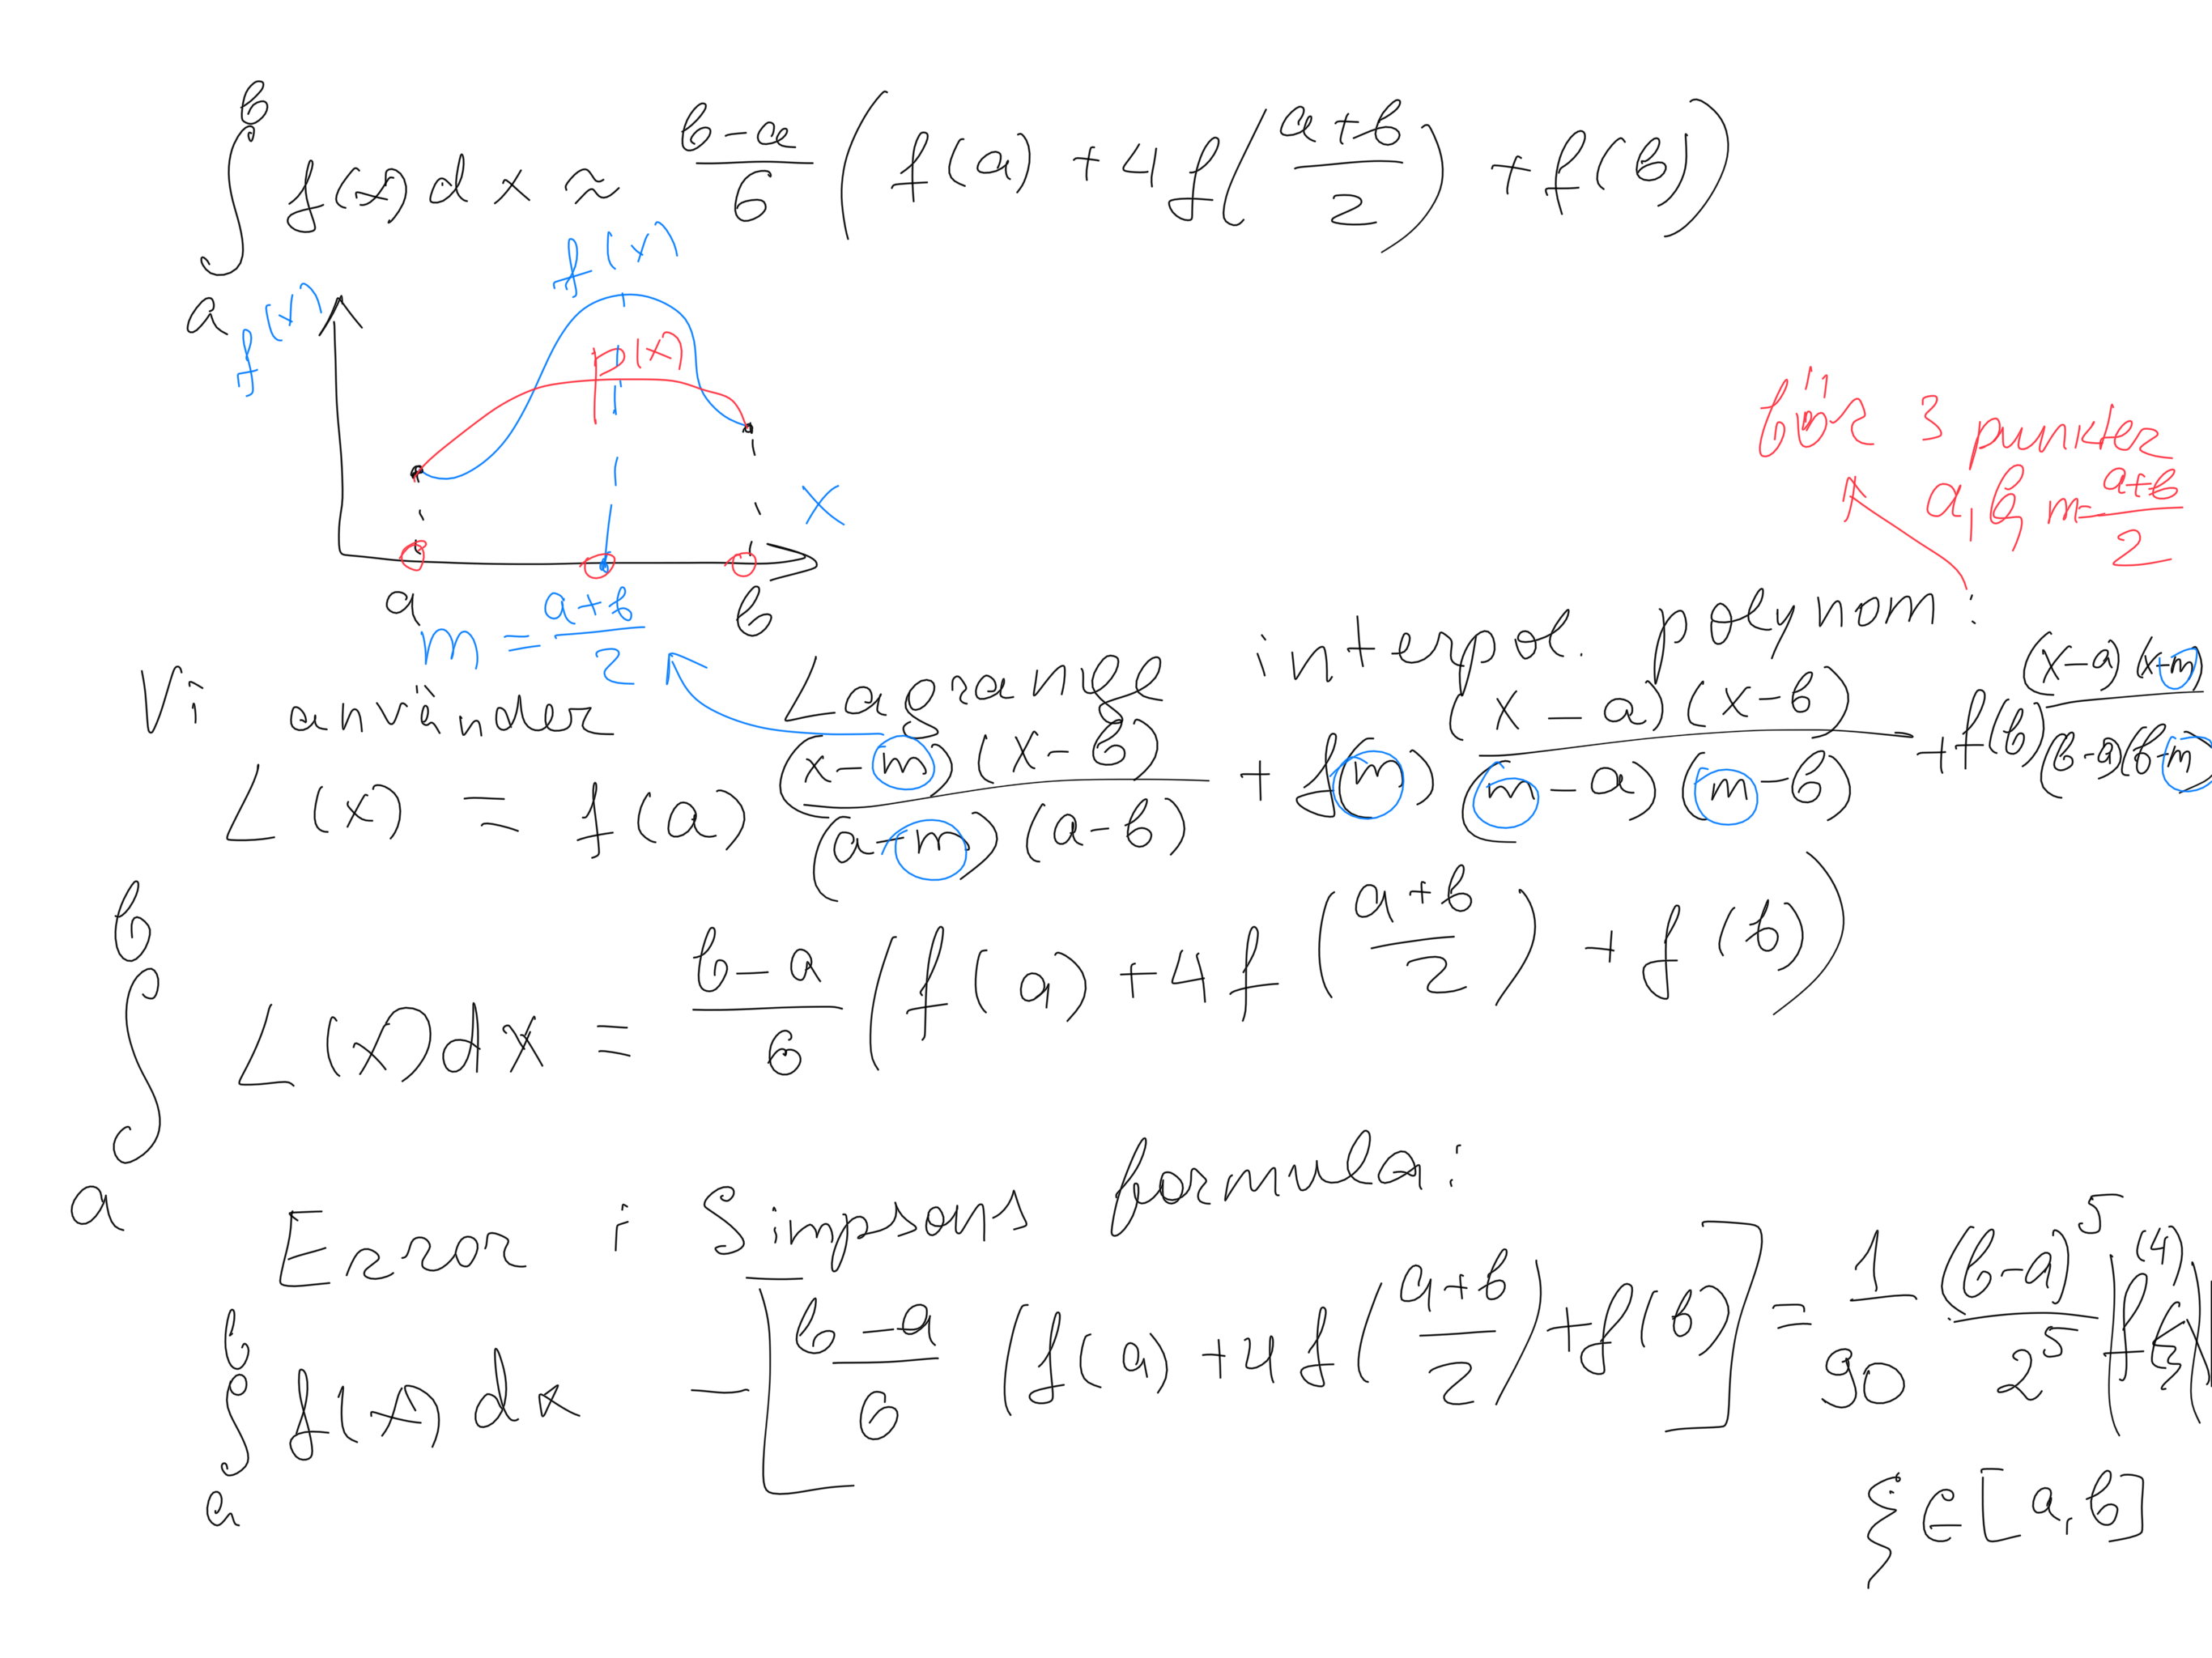 ∫_a^b f(x)dx ≈ (b-a)/6 (f(a) + 4f((a+b)/2) + f(b))
f(x)
f(x)
p(x)
för 3 punkter
a, b, m = (a+b)/2
x
a
b
m = (a+b)/2
Vi använder Lagrange interpol. polynom:
L(x) = f(a) (x-m)(x-b)/(a-m)(a-b) + f(m) (x-a)(x-b)/(m-a)(m-b) + f(b) (x-a)(x-m)/(b-a)(b-m)
∫_a^b L(x)dx = (b-a)/6 (f(a) + 4f((a+b)/2) + f(b))
Error i Simpsons formula:
∫_a^b f(x)dx - [(b-a)/6 (f(a) + 4f((a+b)/2) + f(b)] = 1/90 (b-a)^5/2^5 |f^(4)(ξ)|
ξ ∈ [a, b]